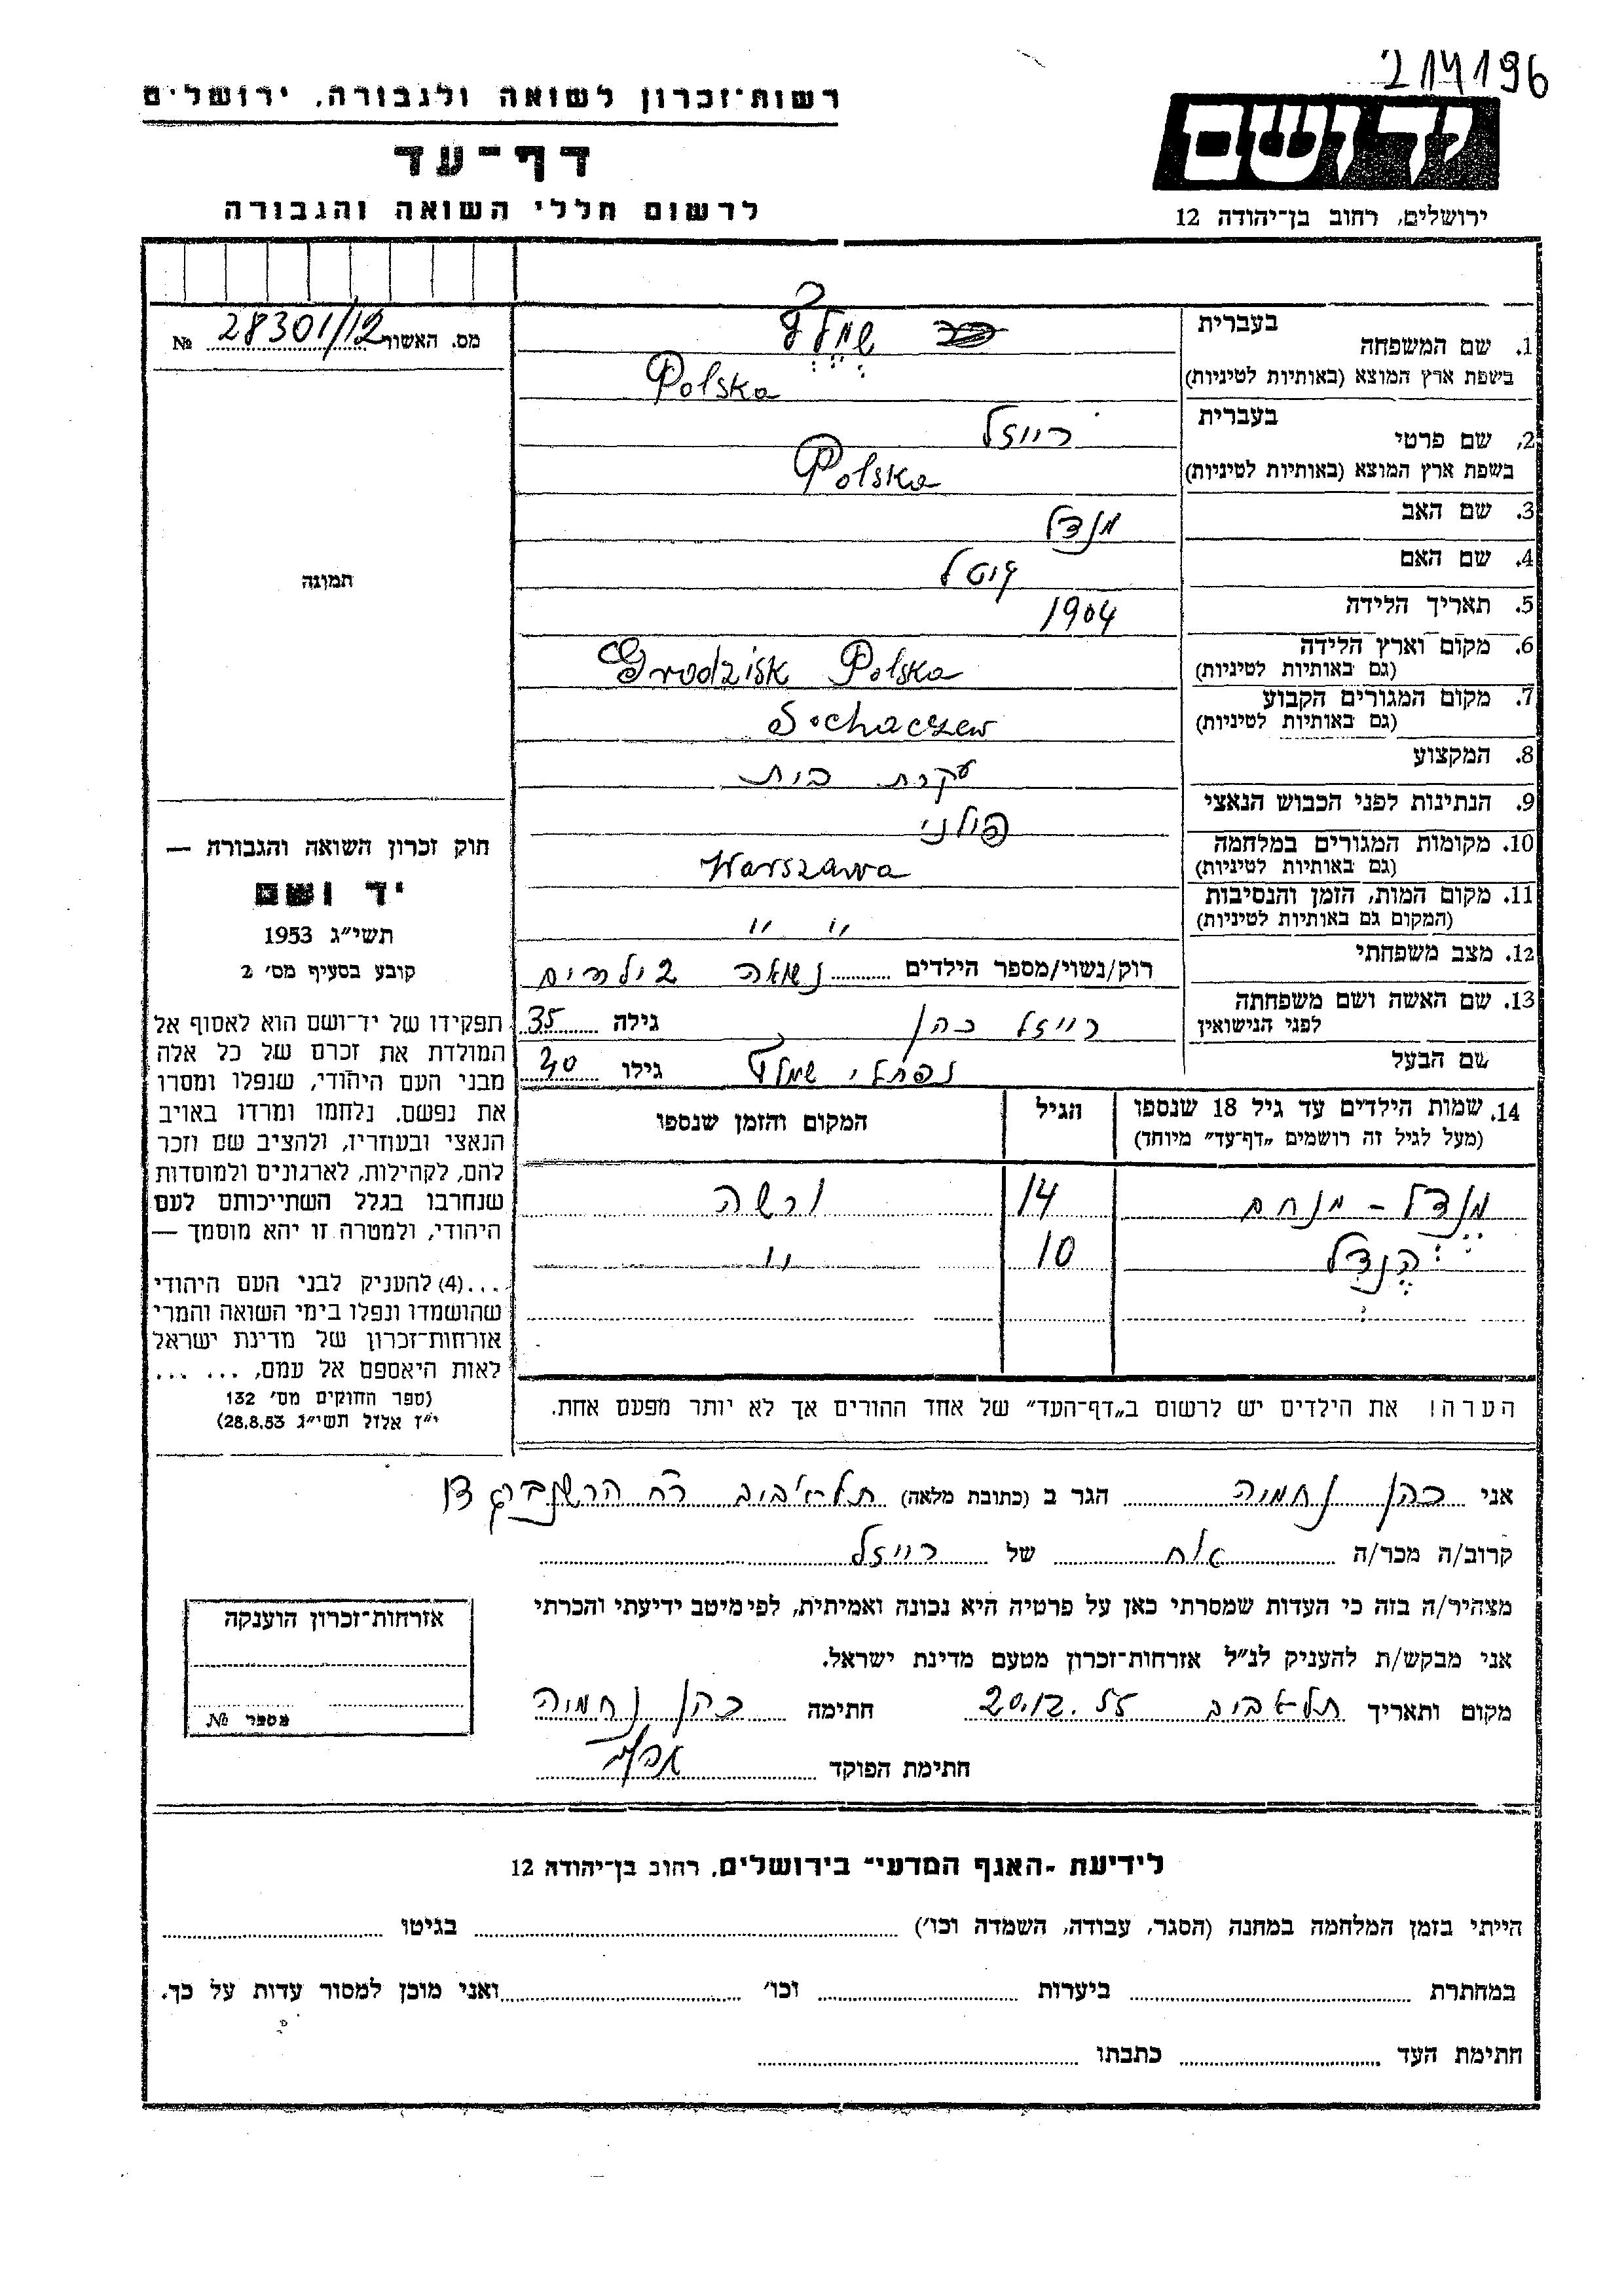 214196
רשות־זכרון לשואה ולגבורה, ירושלים
דף־עד
לרשום חללי השואה והגבורה
יד ושם
ירושלים, רחוב בן־יהודה 12
מס. האשור 28301/12 №
תמונה
חוק זכרון השואה והגבורה —
יד ושם
תשי״ג 1953
קובע בסעיף מס׳ 2
תפקידו של יד־ושם הוא לאסוף אל
המולדת את זכרם של כל אלה
מבני העם היהודי, שנפלו ומסרו
את נפשם, נלחמו ומרדו באויב
הנאצי ובעוזריו, ולהציב שם וזכר
להם, לקהילות, לארגונים ולמוסדות
שנחרבו בגלל השתייכותם לעם
היהודי, ולמטרה זו יהא מוסמך —
...(4) להעניק לבני העם היהודי
שהושמדו ונפלו בימי השואה והמרי
אזרחות־זכרון של מדינת ישראל
לאות היאספם אל עמם, ... ...
(ספר החוקים מס׳ 132
י״ז אלול תשי״ג 28.8.53)
1. שם המשפחה בעברית
בשפת ארץ המוצא (באותיות לטיניות) Polska
2. שם פרטי בעברית רייזל
בשפת ארץ המוצא (באותיות לטיניות) Polska
3. שם האב מנדל
4. שם האם
5. תאריך הלידה 1904
6. מקום וארץ הלידה (גם באותיות לטיניות) Grodzisk Polska
7. מקום המגורים הקבוע (גם באותיות לטיניות) Sochaczew
8. המקצוע עקרת בית
9. הנתינות לפני הכבוש הנאצי פולני
10. מקומות המגורים במלחמה (גם באותיות לטיניות) Warszawa
11. מקום המות, הזמן והנסיבות (המקום גם באותיות לטיניות) " "
12. מצב משפחתי רוק/נשוי/מספר הילדים נשואה 2 ילדים
13. שם האשה ושם משפחתה לפני הנישואין רייזל כהן גילה 35
שם הבעל נפתלי גילו 40
14. שמות הילדים עד גיל 18 שנספו (מעל לגיל זה רושמים „דף־עד״ מיוחד) הגיל המקום והזמן שנספו
מֶנְדל - מנחם 14 ורשה
הֶנְדל 10 "
הערה! את הילדים יש לרשום ב„דף־העד״ של אחד ההורים אך לא יותר מפעם אחת.
אני כהן נחמיה הגר ב (כתובת מלאה) תל־אביב רח
קרוב/ה מכר/ה אח של רייזל
מצהיר/ה בזה כי העדות שמסרתי כאן על פרטיה היא נכונה ואמיתית, לפי מיטב ידיעתי והכרתי
אני מבקש/ת להעניק לנ״ל אזרחות־זכרון מטעם מדינת ישראל.
מקום ותאריך תל אביב 20.12.55 חתימה כהן נחמיה
חתימת הפוקד
אזרחות־זכרון הוענקה
מספר №
לידיעת „האגף המדעי״ בירושלים, רחוב בן־יהודה 12
הייתי בזמן המלחמה במחנה (הסגר, עבודה, השמדה וכו׳) בגיטו
במחתרת ביערות וכו׳ ואני מוכן למסור עדות על כך.
חתימת העד כתבתו